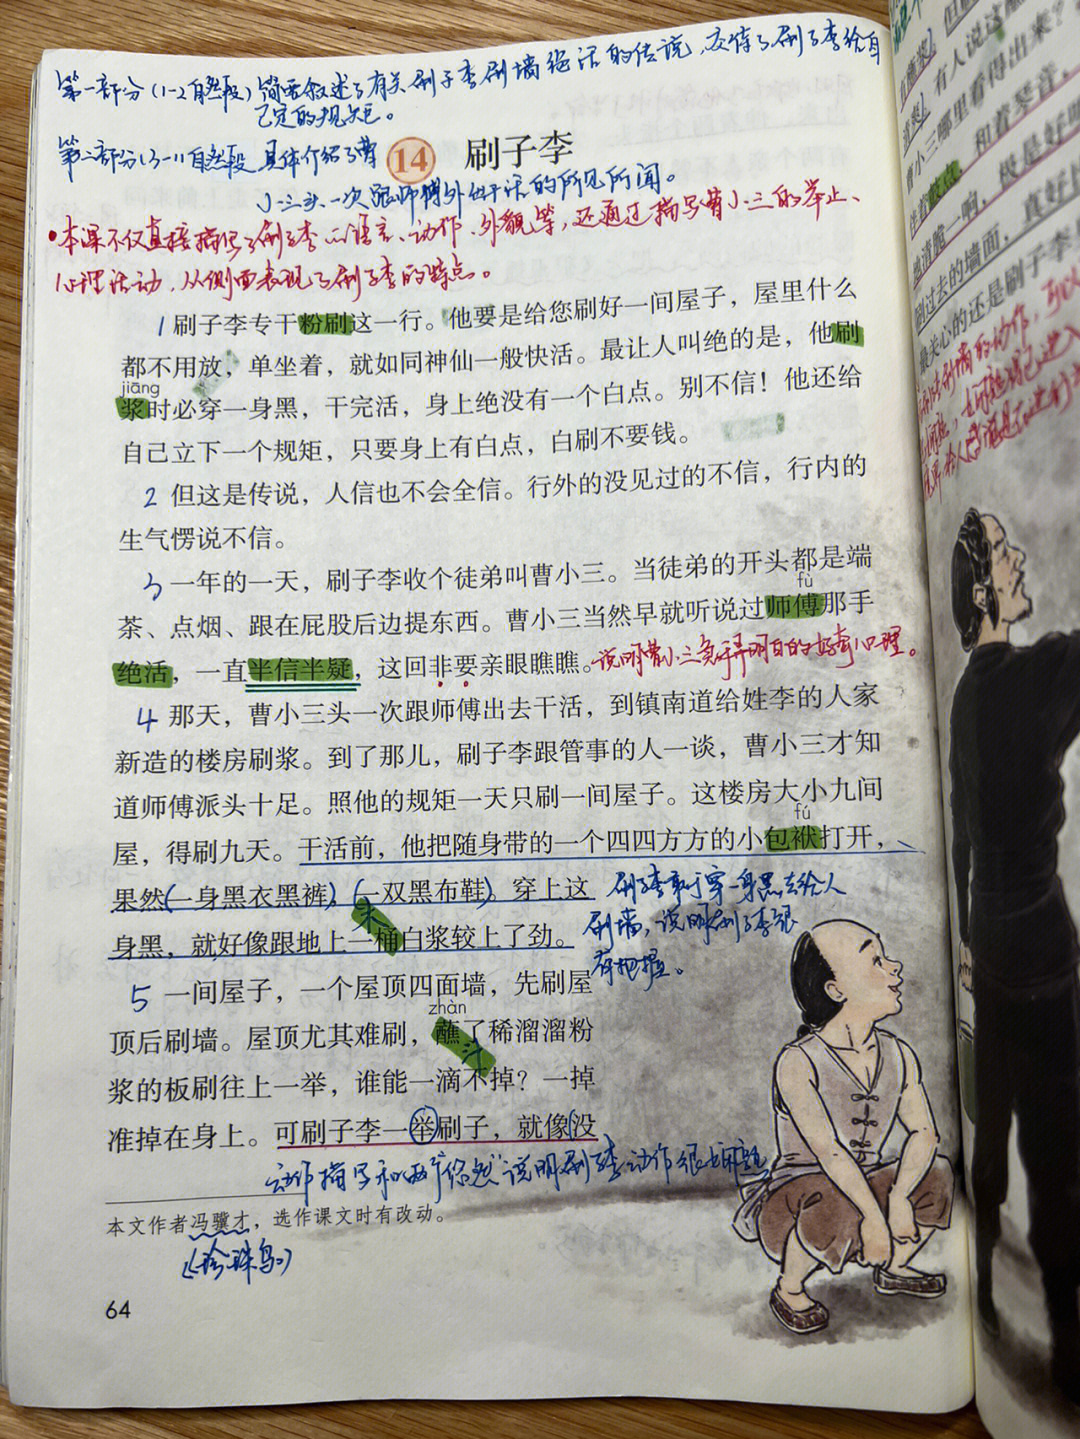 第一部分(1-2自然段)简要叙述了有关刷子李刷墙绝活的传说,交待了刷子李给自
己定的规矩。
第二部分(3-11自然段 具体介绍了曹
小三头一次跟师傅外出干活的所见所闻。
14 刷子李
•本课不仅直接描写了刷子李的语言、动作、外貌等,还通过描写曹小三的举止、
心理活动,从侧面表现了刷子李的特点。
1 刷子李专干粉刷这一行。他要是给您刷好一间屋子,屋里什么
都不用放,单坐着,就如同神仙一般快活。最让人叫绝的是,他刷
jiāng
浆时必穿一身黑,干完活,身上绝没有一个白点。别不信!他还给
自己立下一个规矩,只要身上有白点,白刷不要钱。
2 但这是传说,人信也不会全信。行外的没见过的不信,行内的
生气愣说不信。
3 一年的一天,刷子李收个徒弟叫曹小三。当徒弟的开头都是端
fù
茶、点烟、跟在屁股后边提东西。曹小三当然早就听说过师傅那手
绝活,一直半信半疑,这回非要亲眼瞧瞧。说明曹小三急于弄明白的好奇心理。
4 那天,曹小三头一次跟师傅出去干活,到镇南道给姓李的人家
新造的楼房刷浆。到了那儿,刷子李跟管事的人一谈,曹小三才知
道师傅派头十足。照他的规矩一天只刷一间屋子。这楼房大小九间
fú
屋,得刷九天。干活前,他把随身带的一个四四方方的小包袱打开,
果然(一身黑衣黑裤)(一双黑布鞋)。穿上这 刷子李敢于穿一身黑去给人
身黑,就好像跟地上一桶白浆较上了劲。 刷墙,说明刷子李很
有把握。
5 一间屋子,一个屋顶四面墙,先刷屋
zhàn
顶后刷墙。屋顶尤其难刷,蘸了稀溜溜粉
浆的板刷往上一举,谁能一滴不掉?一掉
准掉在身上。可刷子李一举刷子,就像没
动作描写和两个"悠然"说明刷子李动作很娴熟
本文作者冯骥才,选作课文时有改动。
(《珍珠鸟》)
64
有人说这
曹小三哪里看得出来?
和着琴音,
极是好
刷过去的墙面,真好
最关心的还是刷子李